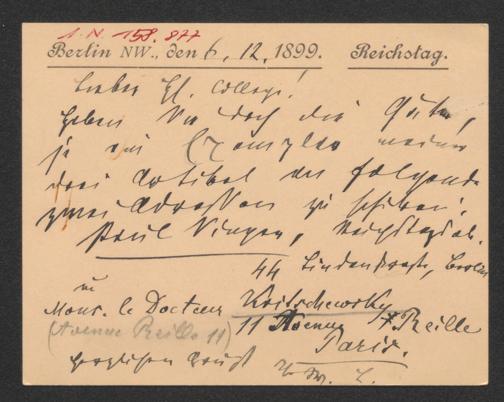 I.N. 158.877
Berlin NW., den 6. 12. 1899. Reichstag.
Lieber College!
haben Sie doch die Güte,
je ein Exemplar meiner
drei Artikel an folgende
zwei Adressen zu schicken:
Paul Singer, Reichstagsab.
44 Lindenstraße, Berlin
u
Mons. le Docteur Kritschewsky
11 Avenue Reille
(Avenue Reille 11)
Paris.
Herzlichen Gruß